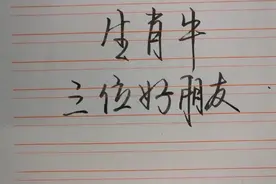 生肖牛
三位好朋友